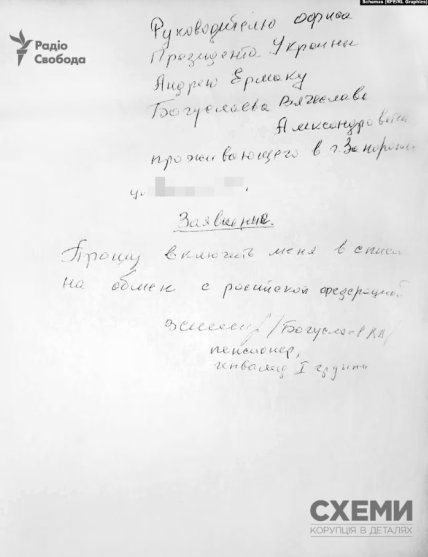 Schemes (RFE/RL Graphics)
Радіо
Свобода
Руководителю офиса
Президента Украины
Андрею Ермаку
Богуслаева Вячеслава
Александровича
проживающего в г. Запорожье
ул.
Заявление.
Прошу включить меня в список
на обмен с российской федерацией
/Богуслаев ВА/
пенсионер,
инвалид I группы
СХЕМИ
КОРУПЦІЯ В ДЕТАЛЯХ